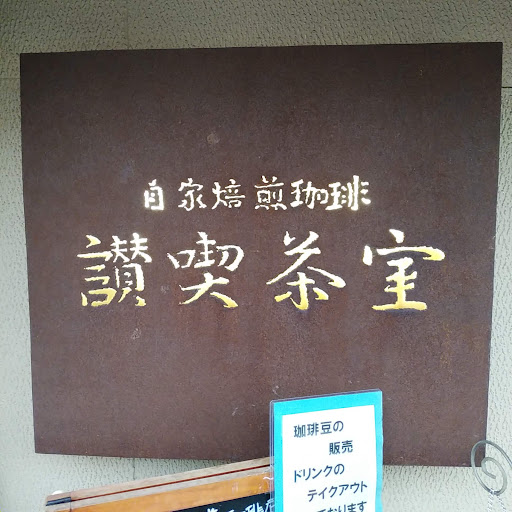 自家焙煎珈琲
讃喫茶室
珈琲豆の
販売
ドリンクの
テイクアウト
ております